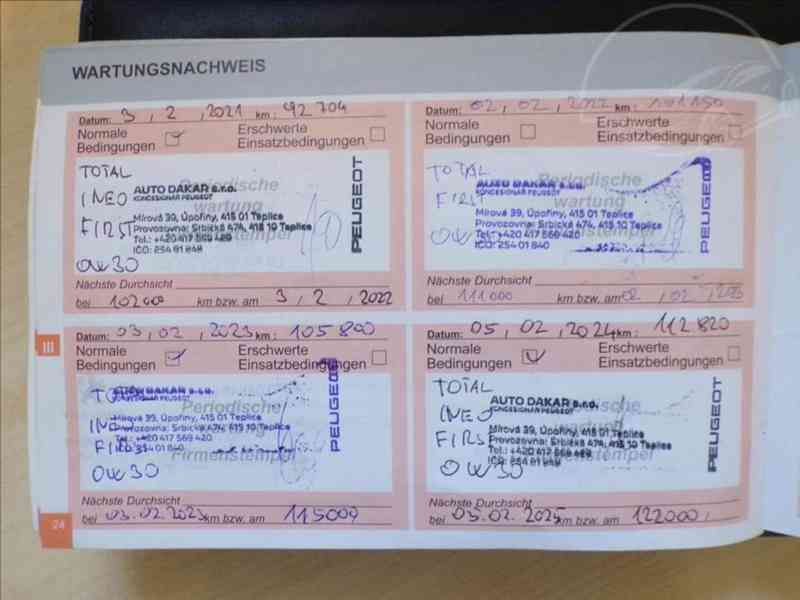 WARTUNGSNACHWEIS
Datum: 3, 2, 2021 km: 92 704
Normale Bedingungen
Erschwerte Einsatzbedingungen
TOTAL
INEO
FIRST
OW30
Periodische
wartung
Firmenstempel
AUTO DAKAR s.r.o.
KONCESIONÁŘ PEUGEOT
Mírová 39, Úpořiny, 415 01 Teplice
Provozovna: Srbická 474, 415 10 Teplice
Tel.: +420 417 569 420
IČO: 254 01 840
PEUGEOT
Nächste Durchsicht
bei 102000 km bzw. am 3, 2, 2022
Datum: 02, 02, 2022 km: 101150
Normale Bedingungen
Erschwerte Einsatzbedingungen
TOTAL
FIRST
OW
Periodische
wartung
Firmenstempel
Mírová 39, Úpořiny, 415 01 Teplice
Provozovna: Srbická 474, 415 10 Teplice
Tel.: +420 417 569 420
IČO: 254 01 840
PEUGEOT
Nächste Durchsicht
bei 111000 km bzw. am 02, 02,
Datum: 03, 02, 2023 km: 105800
Normale Bedingungen
Erschwerte Einsatzbedingungen
FIRST
OW30
Periodische
Firmenstempel
AUTO DAKAR s.r.o.
KONCESIONÁŘ PEUGEOT
Mírová 39, Úpořiny, 415 01 Teplice
Provozovna: Srbická 474, 415 10 Teplice
Tel.: +420 417 569 420
PEUGEOT
Nächste Durchsicht
bei 03.02. km bzw. am 115000
Datum: 05, 02, 2024 km: 112820
Normale Bedingungen
Erschwerte Einsatzbedingungen
TOTAL
INEO
FIRST
OW30
AUTO DAKAR s.r.o.
KONCESIONÁŘ PEUGEOT
Mírová 39, Úpořiny, 415 01 Teplice
Provozovna: Srbická 474, 415 10 Teplice
Tel.: +420 417 569 420
IČO: 254 01 840
PEUGEOT
Nächste Durchsicht
bei 05.02.2025 km bzw. am 122000,
III
24